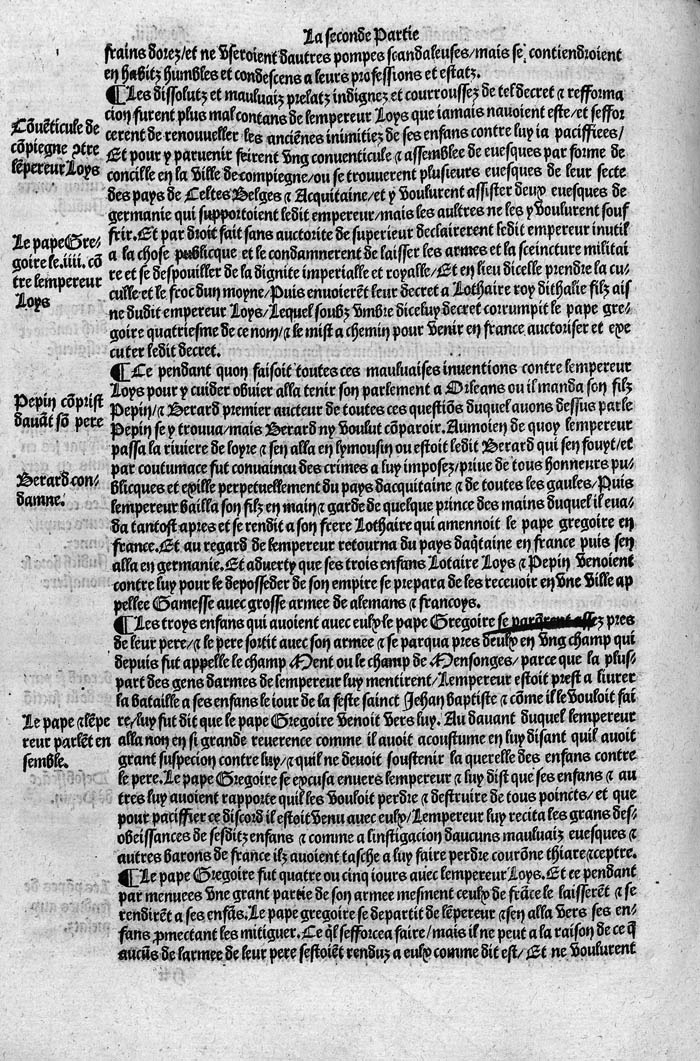 La seconde Partie
frains dorez/et ne vseroient dautres pompes scandaleuses/mais se contiendroient
en habitz humbles et condescens a leurs professions et estatz.
¶Les dissolutz et mauluaiz prelatz indignez et courroussez de tel decret ⁊ refforma
cion furent plus mal contans de lempereur Loys que iamais nauoient este/et seffor
cerent de renouueller les anciẽnes inimitiez de ses enfans contre luy ia paciffiees/
Et pour y paruenir feirent vng conuenticule ⁊ assemblee de euesques par forme de
concille en la ville de compiegne/ou se trouuerent plusieurs euesques de leur secte
des pays de Celtes Belges ⁊ Acquitaine/et y voulurent assister deux euesques de
germanie qui supportoient ledit empereur/mais les aultres ne les y voulurent souf
frir. Et par droit fait sans auctorite de superieur declairerent ledit empereur inutil
a la chose publicque et le condamnerent de laisser les armes et la sceincture militai
re et se despouiller de la dignite imperialle et royalle/Et en lieu dicelle prendre la cu-
culle et le froc dun moyne/Puis enuoierẽt leur decret a Lothaire roy dithalie filz ais
ne dudit empereur Loys/Lequel soubz vmbre diceluy decret corrumpit le pape gre-
goire quatriesme de ce nom/⁊ le mist a chemin pour venir en france auctoriser et exe
cuter ledit decret.
¶Ce pendant quon faisoit toutes ces mauluaises inuentions contre lempereur
Loys pour y cuider obuier alla tenir son parlement a Orleans ou il manda son filz
Pepin/⁊ Berard premier aucteur de toutes ces questiõs duquel auons dessus parle
Pepin se y trouua/mais Berard ny voulut cõparoir. Aumoien de quoy lempereur
passa la riuiere de loyre ⁊ sen alla en lymousin ou estoit ledit Berard qui sen fouyt/et
par coutumace fut conuaincu des crimes a luy imposez/priue de tous honneurs pu-
blicques et exille perpetuellement du pays dacquitaine ⁊ de toutes les gaules/Puis
lempereur bailla son filz en main ⁊ garde de quelque prince des mains duquel il eua-
da tantost apres et se rendit a son frere Lothaire qui amennoit le pape gregoire en
france. Et au regard de lempereur retourna du pays daq̃taine en france puis sen
alla en germanie. Et aduerty que ses trois enfans Lotaire Loys ⁊ Pepin venoient
contre luy pour le deposseder de son empire se prepara de les receuoir en vne ville ap
pellee Gamesse auec grosse armee de alemans ⁊ francoys.
¶Les troys enfans qui auoient auec eulx le pape Gregoire se parãrent assez pres
de leur pere/⁊ le pere sortit auec son armee ⁊ se parqua pres deulx en vng champ qui
depuis fut appelle le champ Ment ou le champ de Mensonges/parce que la plus-
part des gens darmes de lempereur luy mentirent/Lempereur estoit prest a liurer
la bataille a ses enfans le iour de la feste sainct Jehan baptiste ⁊ cõme il le vouloit fai
re/luy fut dit que le pape Gregoire venoit vers luy. Au dauant duquel lempereur
alla non en si grande reuerence comme il auoit acoustume en luy disant quil auoit
grant suspecion contre luy/⁊ quil ne deuoit soustenir la querelle des enfans contre
le pere. Le pape Gregoire se excusa enuers lempereur ⁊ luy dist que ses enfans ⁊ au
tres luy auoient rapporte quil les vouloit perdre ⁊ destruire de tous poincts/et que
pour paciffier ce discord il estoit venu auec eulx/Lempereur luy recita les grans des-
obeissances de sesditz enfans ⁊ comme a linstigacion daucuns mauluaiz euesques ⁊
autres barons de france ilz auoient tasche a luy faire perdre courõne thiare ⁊ ceptre.
¶Le pape Gregoire fut quatre ou cinq iours auec lempereur Loys. Et ce pendant
par menuees vne grant partie de son armee mesment ceulx de frãce le laisserẽt ⁊ se
rendirẽt a ses enfãs. Le pape gregoire se departit de lẽpereur ⁊ sen alla vers ses en-
fans ꝓmectant les mitiguer. Ce q̃l sefforcea faire/mais il ne peut a la raison de ce q̃
aucũs de larmee de leur pere sestoiẽt renduz a eulx comme dit est/Et ne voulurent
Cõuẽticule de
cõpiegne ↄtre
lẽpereur Loys
Le pape Gre/
goire le .iiii. cõ
tre lempereur
Loys
Pepin cõprist
dauãt sõ pere
Berard con-
damne.
Le pape ⁊ lẽpe
reur parlẽt en
semble.